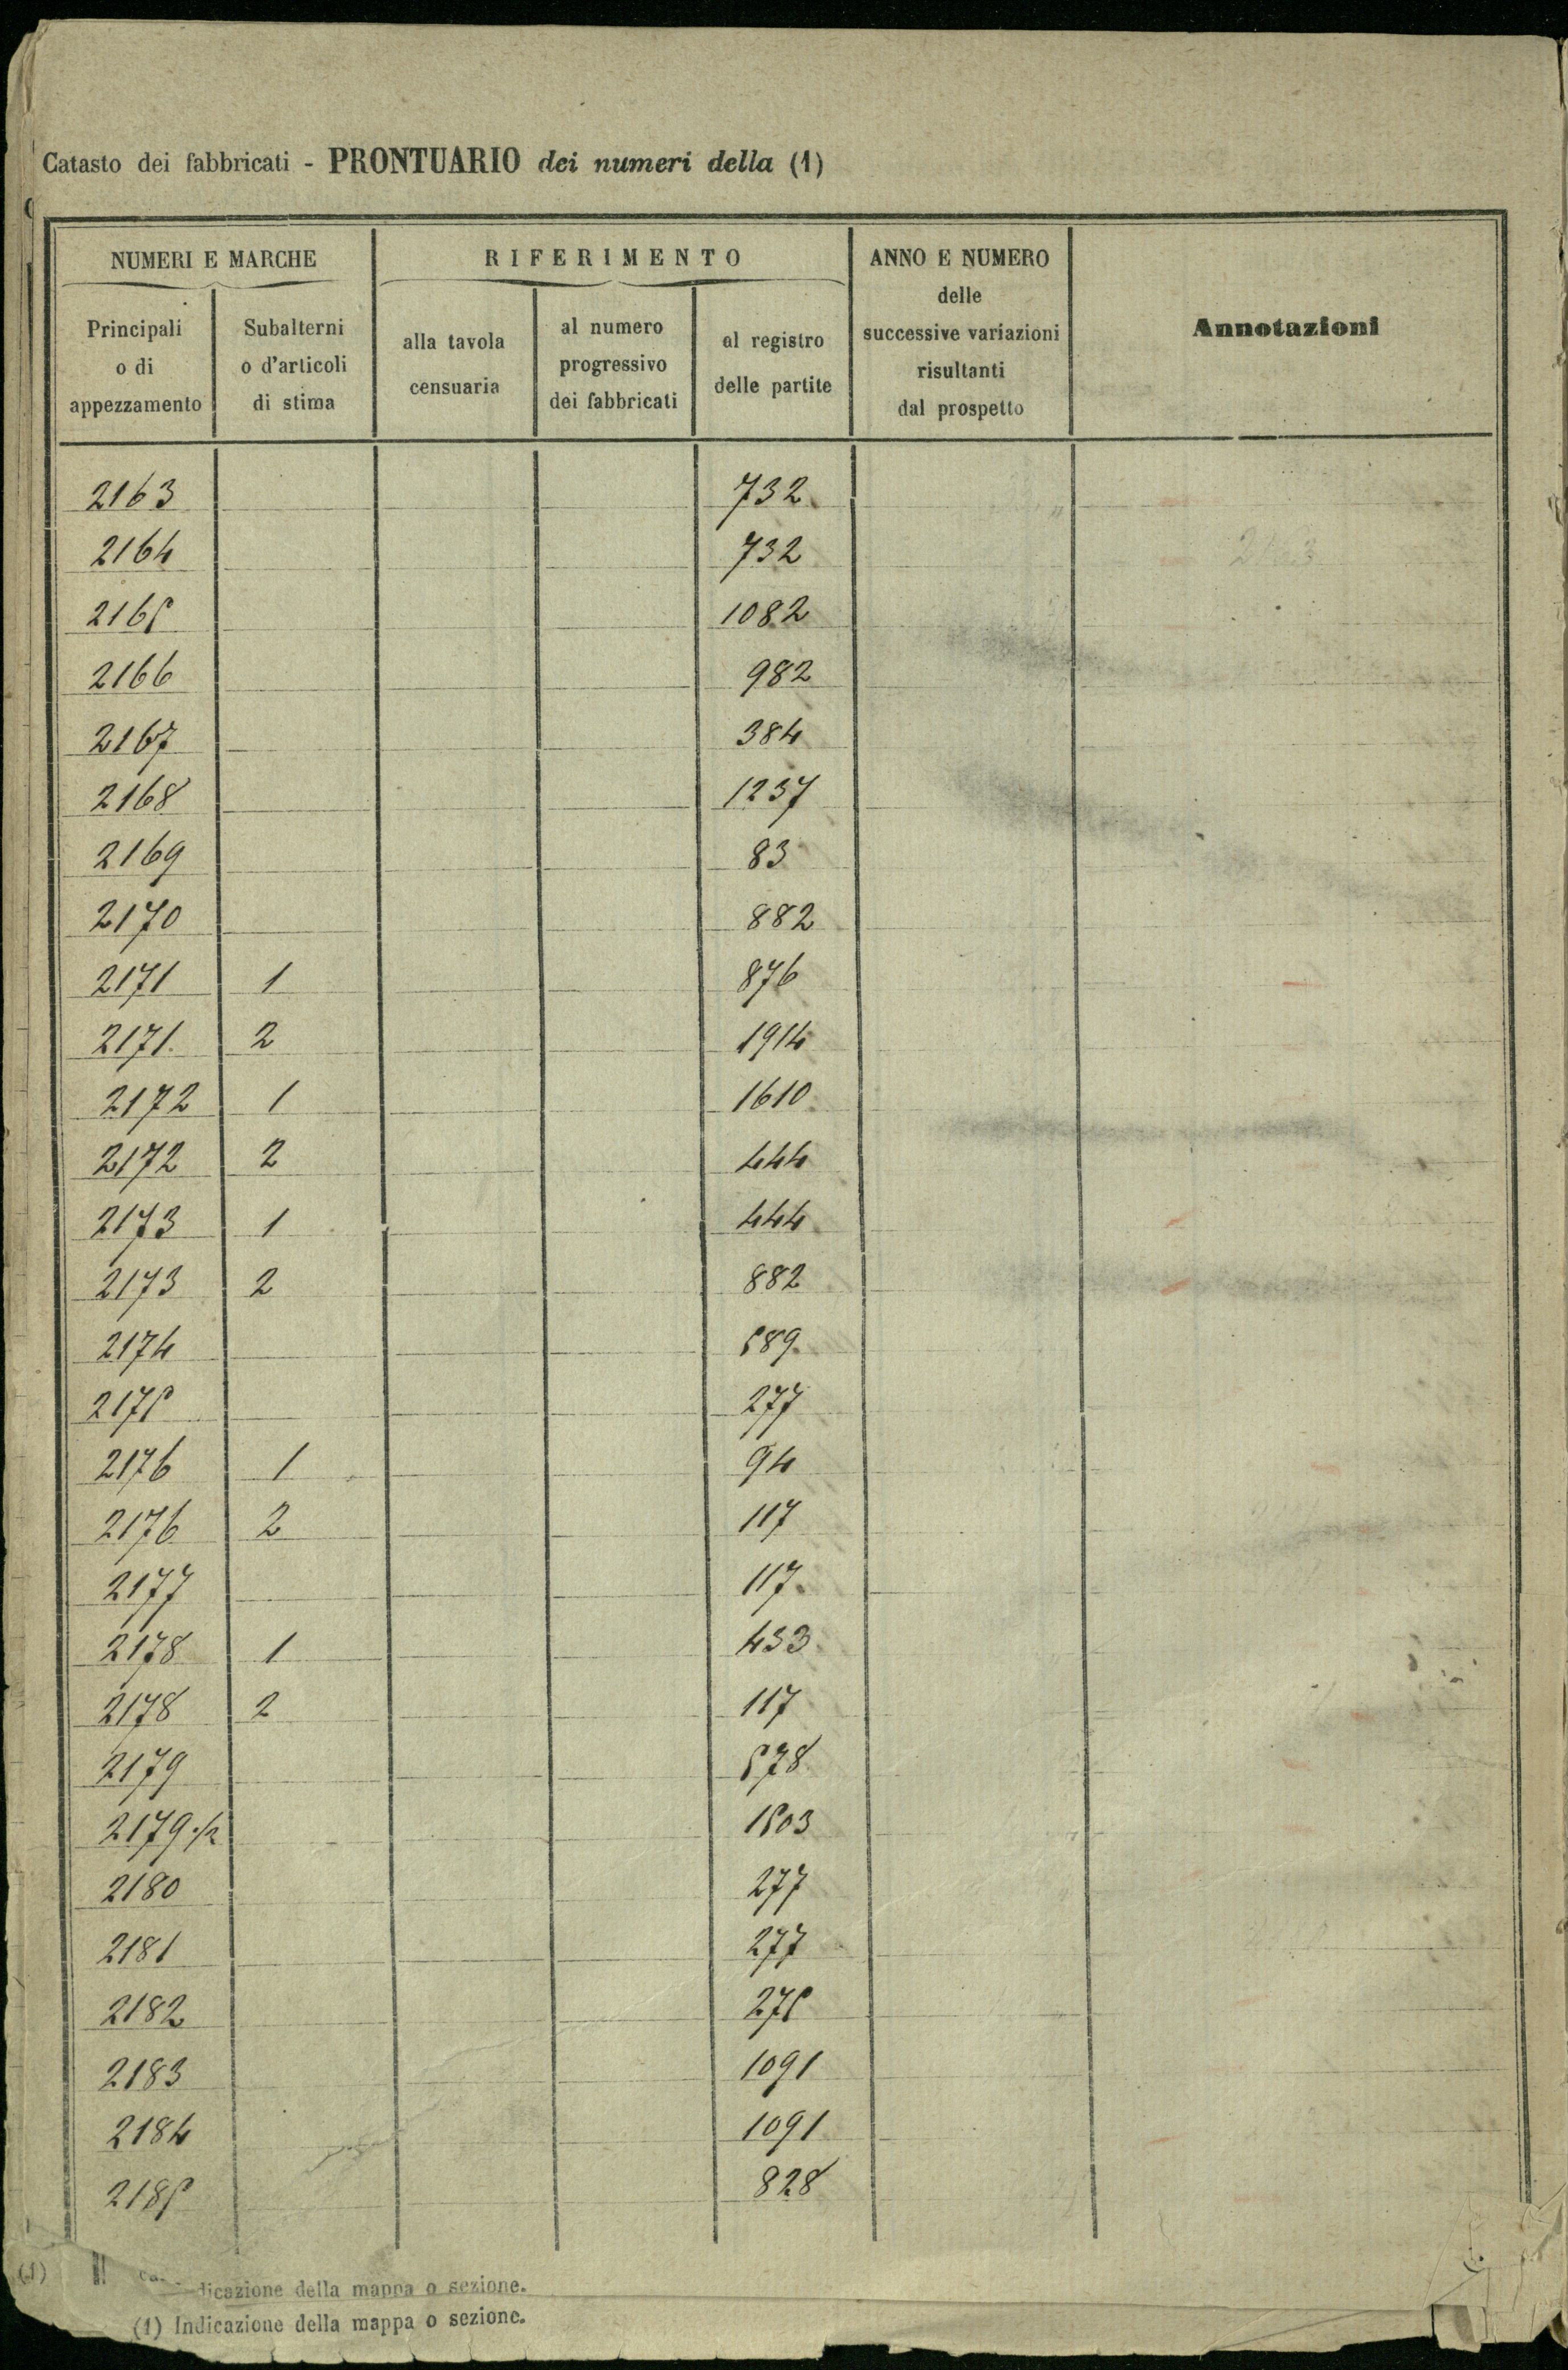 Catasto dei fabbricati - PRONTUARIO dei numeri della (1)
NUMERI E MARCHE RIFERIMENTO ANNO E NUMERO delle successive variazioni risultanti dal prospetto Annotazioni
Principali o di appezzamento Subalterni o d'articoli di stima alla tavola censuaria al numero progressivo dei fabbricati al registro delle partite
2163 732
2164 732
2165 1082
2166 982
2167 384
2168 1237
2169 83
2170 882
2171 1 876
2171 2 1914
2172 1 1610
2172 2 444
2173 1 444
2173 2 882
2174 589
2175 277
2176 1 94
2176 2 117
2177 117
2178 1 433
2178 2 117
2179 578
2179 ·/2 1503
2180 277
2181 277
2182 275
2183 1091
2184 1091
2185 828
(1)
dicazione della mappa o sezione.
(1) Indicazione della mappa o sezione.